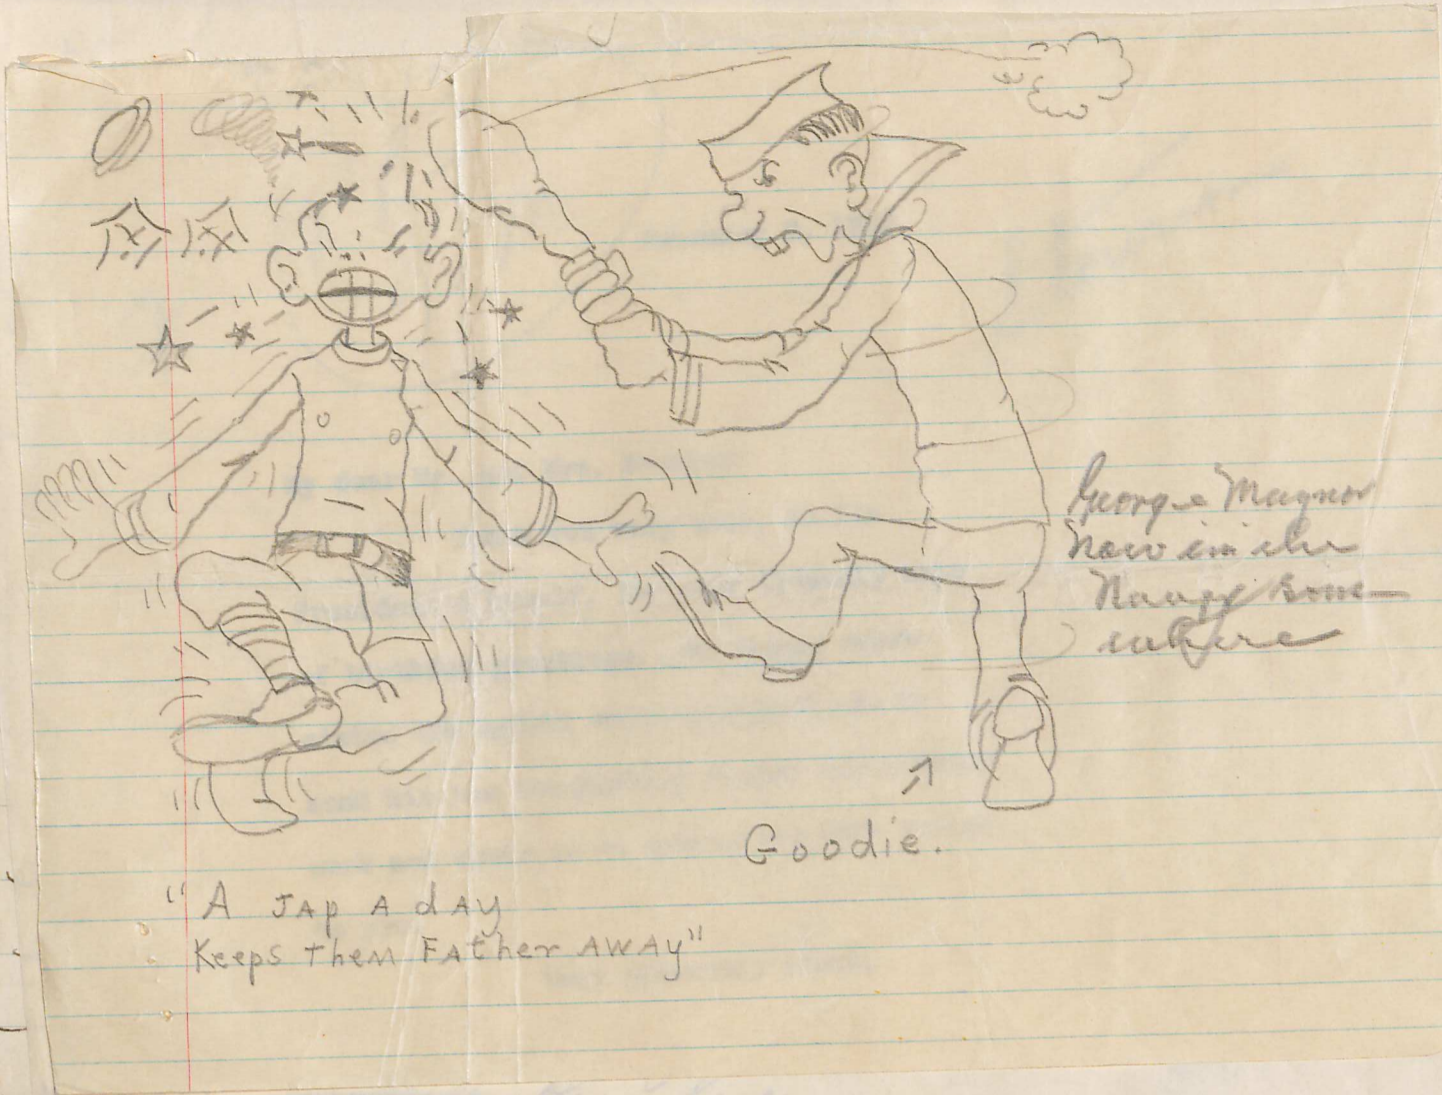 George Maynor
Now in the
Navy some-
where
Goodie.
"A JAP A dAy
Keeps Them FATher AWAy"